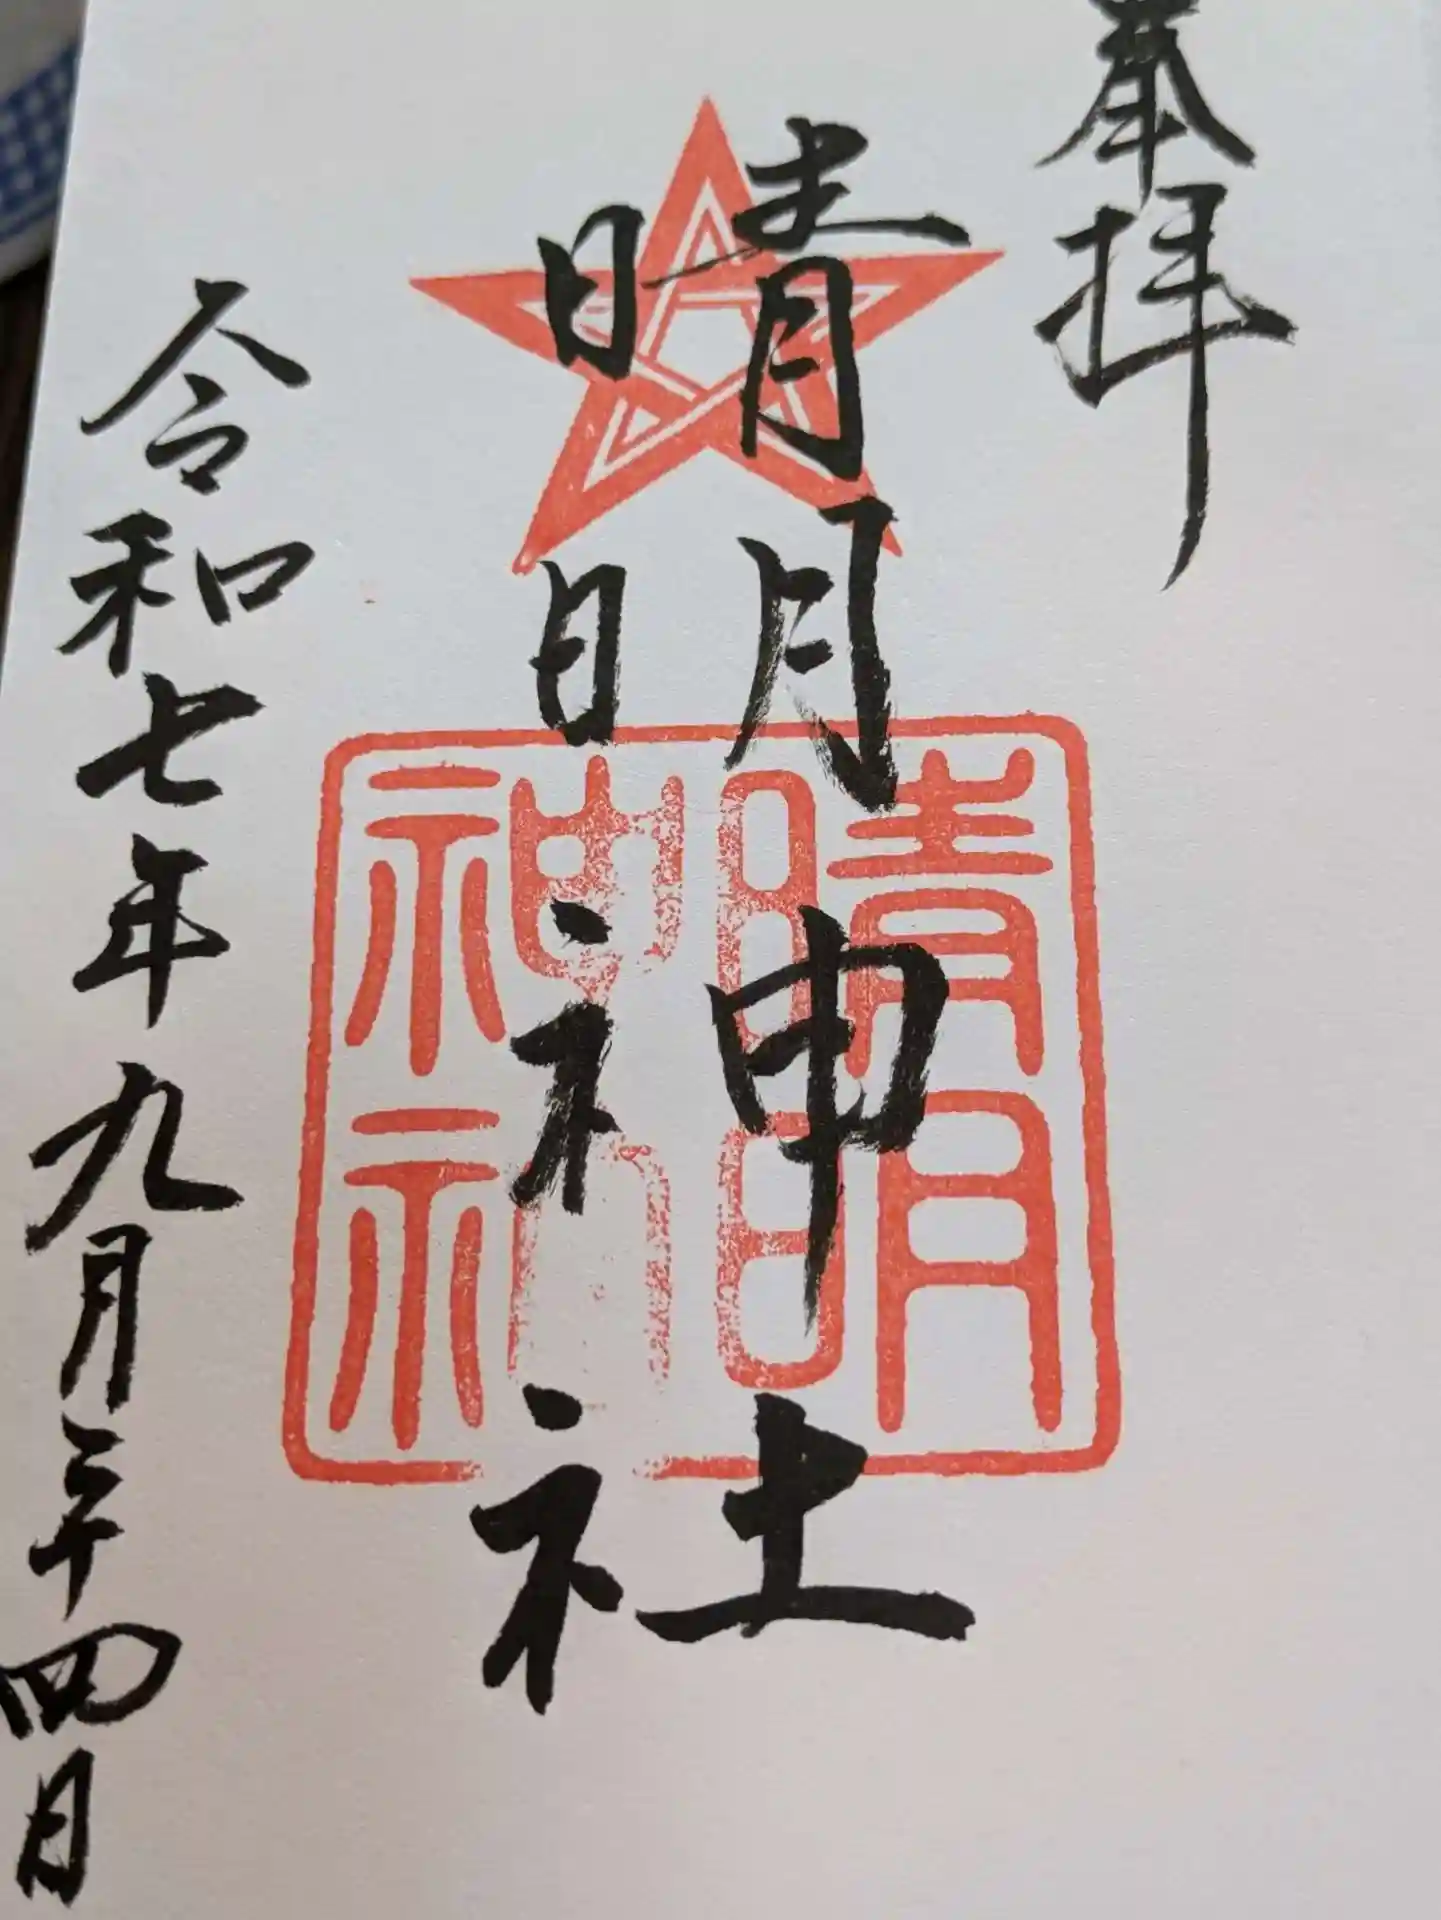 奉拝
晴明神社
晴明神社
令和七年九月二十四日